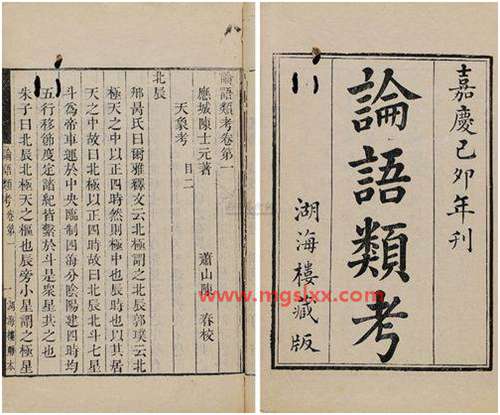 嘉慶己卯年刊
論語類考
湖海樓藏版
論語類考卷第一
應城陳士元著 蕭山陳 春校
天象考 目二
北辰
邢昺氏曰爾雅釋文云北極謂之北辰郭璞云北
極天之中以正四時然則極中也辰時也以其居
天之中故曰北極以正四時故曰北辰北斗七星
斗為帝車運於中央臨制四海分陰陽建四時均
五行移節度定諸紀皆繫於斗是衆星共之也
朱子曰北辰北極天之樞也辰旁小星謂之極星
論語類考卷第一 一 湖海樓雕本
www.mgslxx.com